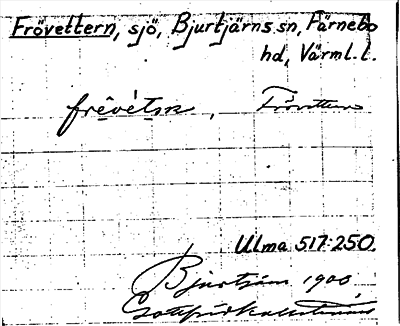 Frövettern, sjö, Bjurtjärns sn, Färnebo
hd, Värml. l.
frèvétặn, Frövettern
Ulma 517:250.
Bjurtjärn 1900
Gottfrid Kallstenius